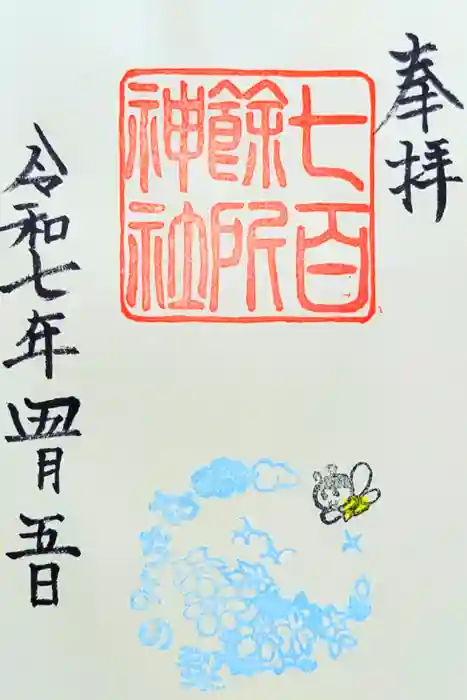 奉拝
七百
餘所
神社
令和七年四月五日